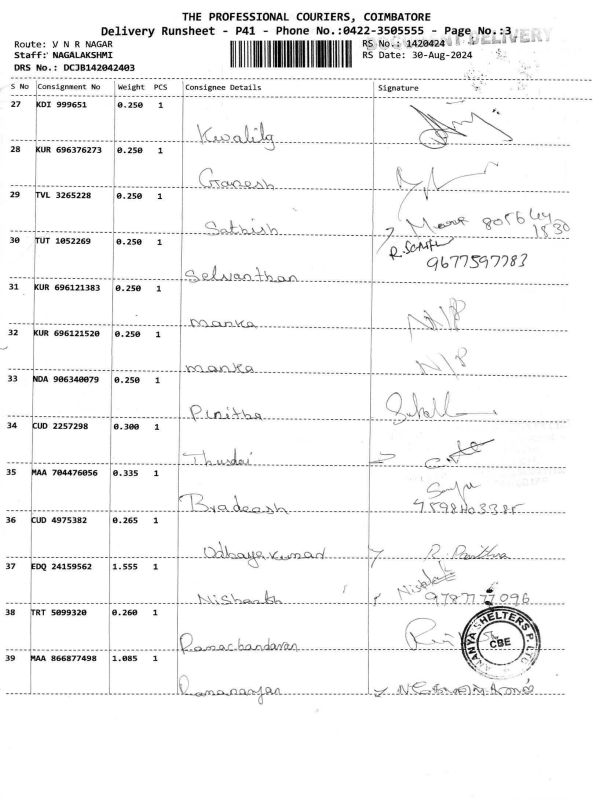 THE PROFESSIONAL COURIERS, COIMBATORE
Delivery Runsheet - P41 - Phone No.:0422-3505555 - Page No.:3
Route: V N R NAGAR
RS No.: 1420424
Staff: NAGALAKSHMI
RS Date: 30-Aug-2024
DRS No.: DCJB142042403
S No Consignment No Weight PCS Consignee Details Signature
27 KDI 999651 0.250 1
Kwalilg
28 KUR 696376273 0.250 1
Ganesh
29 TVL 3265228 0.250 1
Sathish
30 TUT 1052269 0.250 1
9677597783
Selvanthan
31 KUR 696121383 0.250 1
manka N/P
32 KUR 696121520 0.250 1
manka N/P
33 NDA 906340079 0.250 1
Pinitha
34 CUD 2257298 0.300 1
Thusdai
35 MAA 704476056 0.335 1
Bradeesh
36 CUD 4975382 0.265 1
Odhayakumar
37 EDQ 24159562 1.555 1
Nishanth 9787777096
38 TRT 5099320 0.260 1
Ramachandaran
ANANYA SHELTERS P. LTD
CBE
39 MAA 866877498 1.085 1
Ramanayan